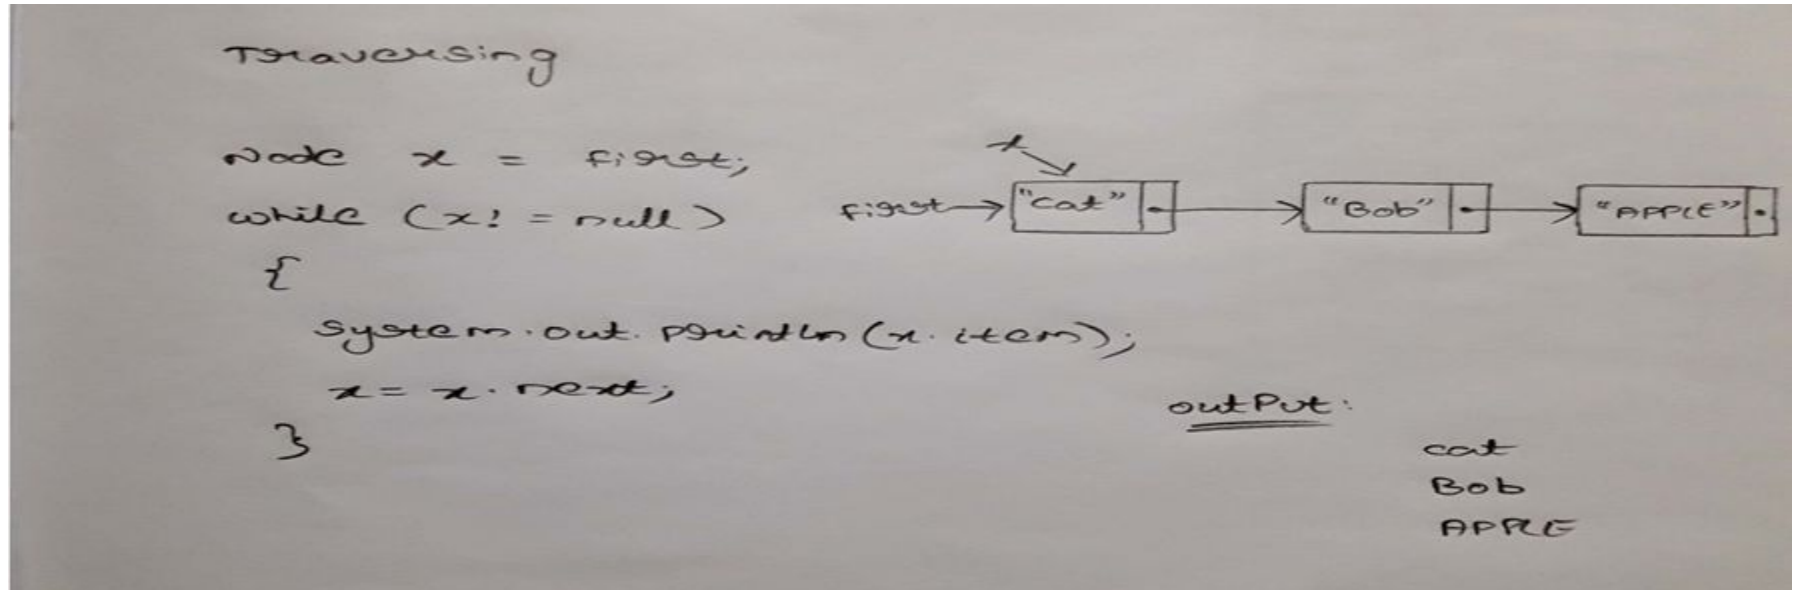 Traversing
Node x = first;
while (x! = null)
{
System.out.println(x.item);
x = x.next;
}
x
first "cat" "Bob" "APPLE"
outPut:
cat
Bob
APPLE